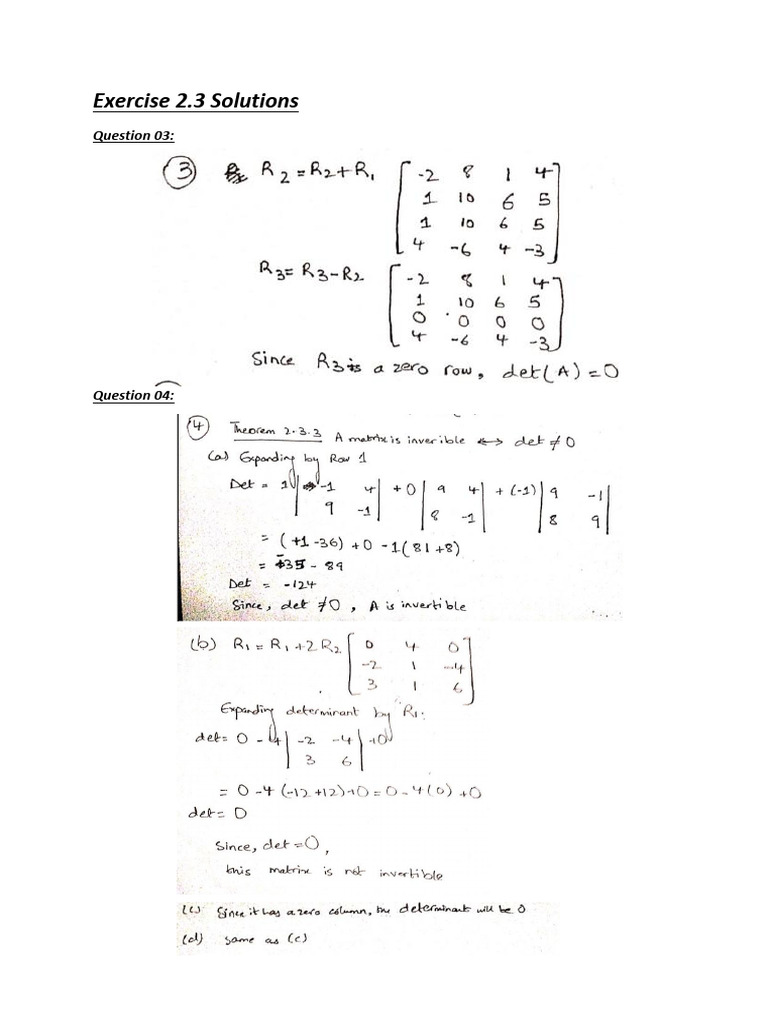 Exercise 2.3 Solutions
Question 03:
3 R2 = R2 + R1 [ -2 8 1 4
1 10 6 5
1 10 6 5
4 -6 4 -3 ]
R3 = R3 - R2 [ -2 8 1 4
1 10 6 5
0 0 0 0
4 -6 4 -3 ]
Since R3 is a zero row, det(A) = 0
Question 04:
4 Theorem 2.3.3 A matrix is inverible ↔ det ≠ 0
(a) Expanding by Row 1
Det = 1 | -1 4 | + 0 | 9 4 | + (-1) | 9 -1 |
| 9 -1 | | 8 -1 | | 8 9 |
= (+1 -36) + 0 -1(81+8)
= -35 - 89
Det = -124
Since, det ≠ 0, A is invertible
(b) R1 = R1 + 2R2 [ 0 4 0
-2 1 -4
3 1 6 ]
Expanding determinant by R1:
det = 0 - 4 | -2 -4 | + 0
| 3 6 |
= 0 - 4 (-12 + 12) + 0 = 0 - 4(0) + 0
det = 0
Since, det = 0,
this matrix is not invertible
(c) Since it has a zero column, the determinant will be 0
(d) same as (c)